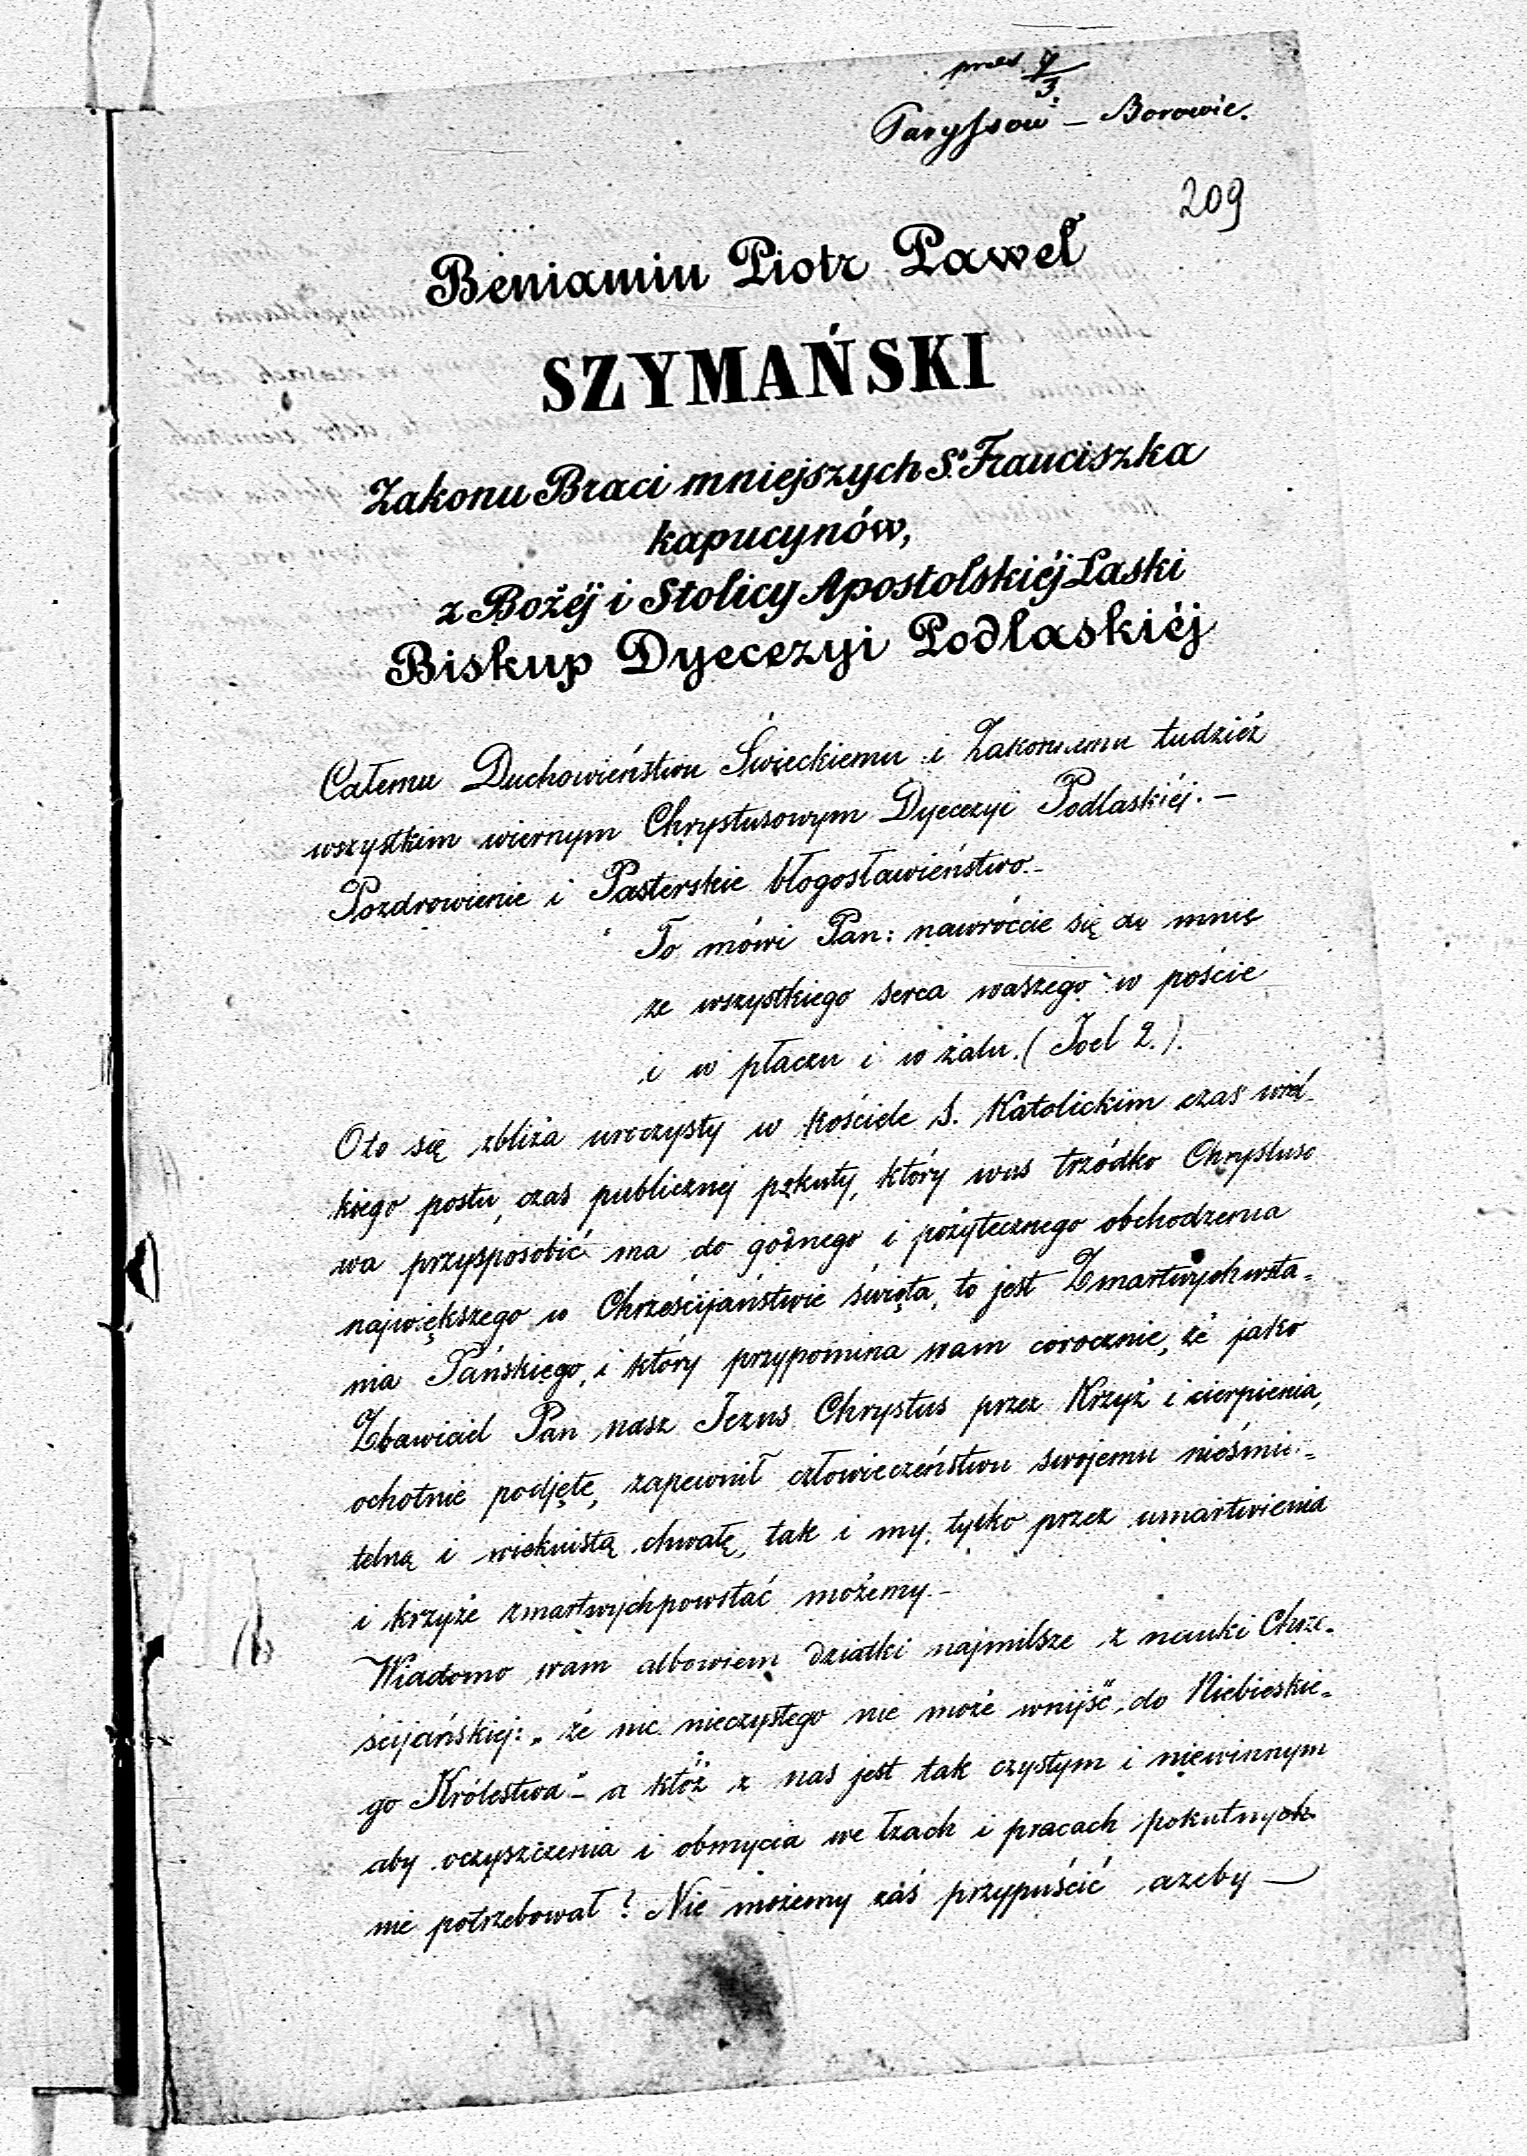 pres 7/3
Paryssow – Borowie.
209
Beniamin Piotr Paweł
SZYMAŃSKI
Zakonu Braci mniejszych S. Franciszka
kapucynów,
z Bożéj i Stolicy Apostolskiéj Łaski
Biskup Dyecezyi Podlaskiéj
Całemu Duchowieństwu Świeckiemu i Zakonnemu tudzież
wszystkim wiernym Chrystusowym Dyecezyi Podlaskiéj. –
Pozdrowienie i Pasterskie błogosławieństwo. –
To mówi Pan: nawróćcie się do mnie
ze wszystkiego serca waszego w poście
i w płaczu i w żalu. (Joel 2.).
Oto się zbliża uroczysty w Kościele S. Katolickim czas wiel-
kiego postu, czas publicznej pokuty, który was trzódko Chrystuso
wa przysposobić ma do godnego i pożytecznego obchodzenia
największego w Chrześcijaństwie święta, to jest Zmartwychwsta=
nia Pańskiego, i który przypomina wam corocznie, że jako
Zbawiciel Pan nasz Jezus Chrystus przez Krzyż i cierpienia,
ochotnie podjęte, zapewnił człowieczeństwu swojemu nieśmier=
telną i wiekuistą chwałę, tak i my tylko przez umartwienia
i krzyże zmartwychpowstać możemy. –
Wiadomo wam albowiem dziatki najmilsze z nauki Chrze=
ścijańskiej: „że nic nieczystego nie może wnijść do Niebieskie=
go Królestwa" – a któż z nas jest tak czystym i niewinnym
aby oczyszczenia i obmycia we łzach i pracach pokutnych
nie potrzebował? Nie możemy zaś przypuścić ażeby –